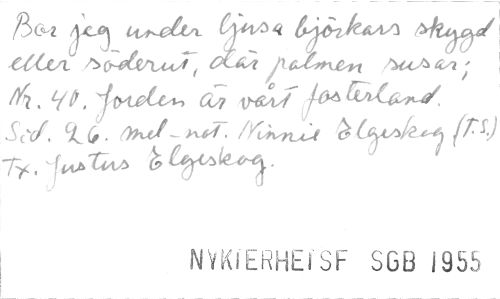 Bor jeg under ljusa björkars skygd
eller söderut, där palmen susar;
Nr. 40. Jorden är vårt fosterland.
Sid. 26. mel-not. Ninnie Elgeskog (T.S.)
Tx. Justus Elgeskog.
NYKTERHETSF SGB 1955